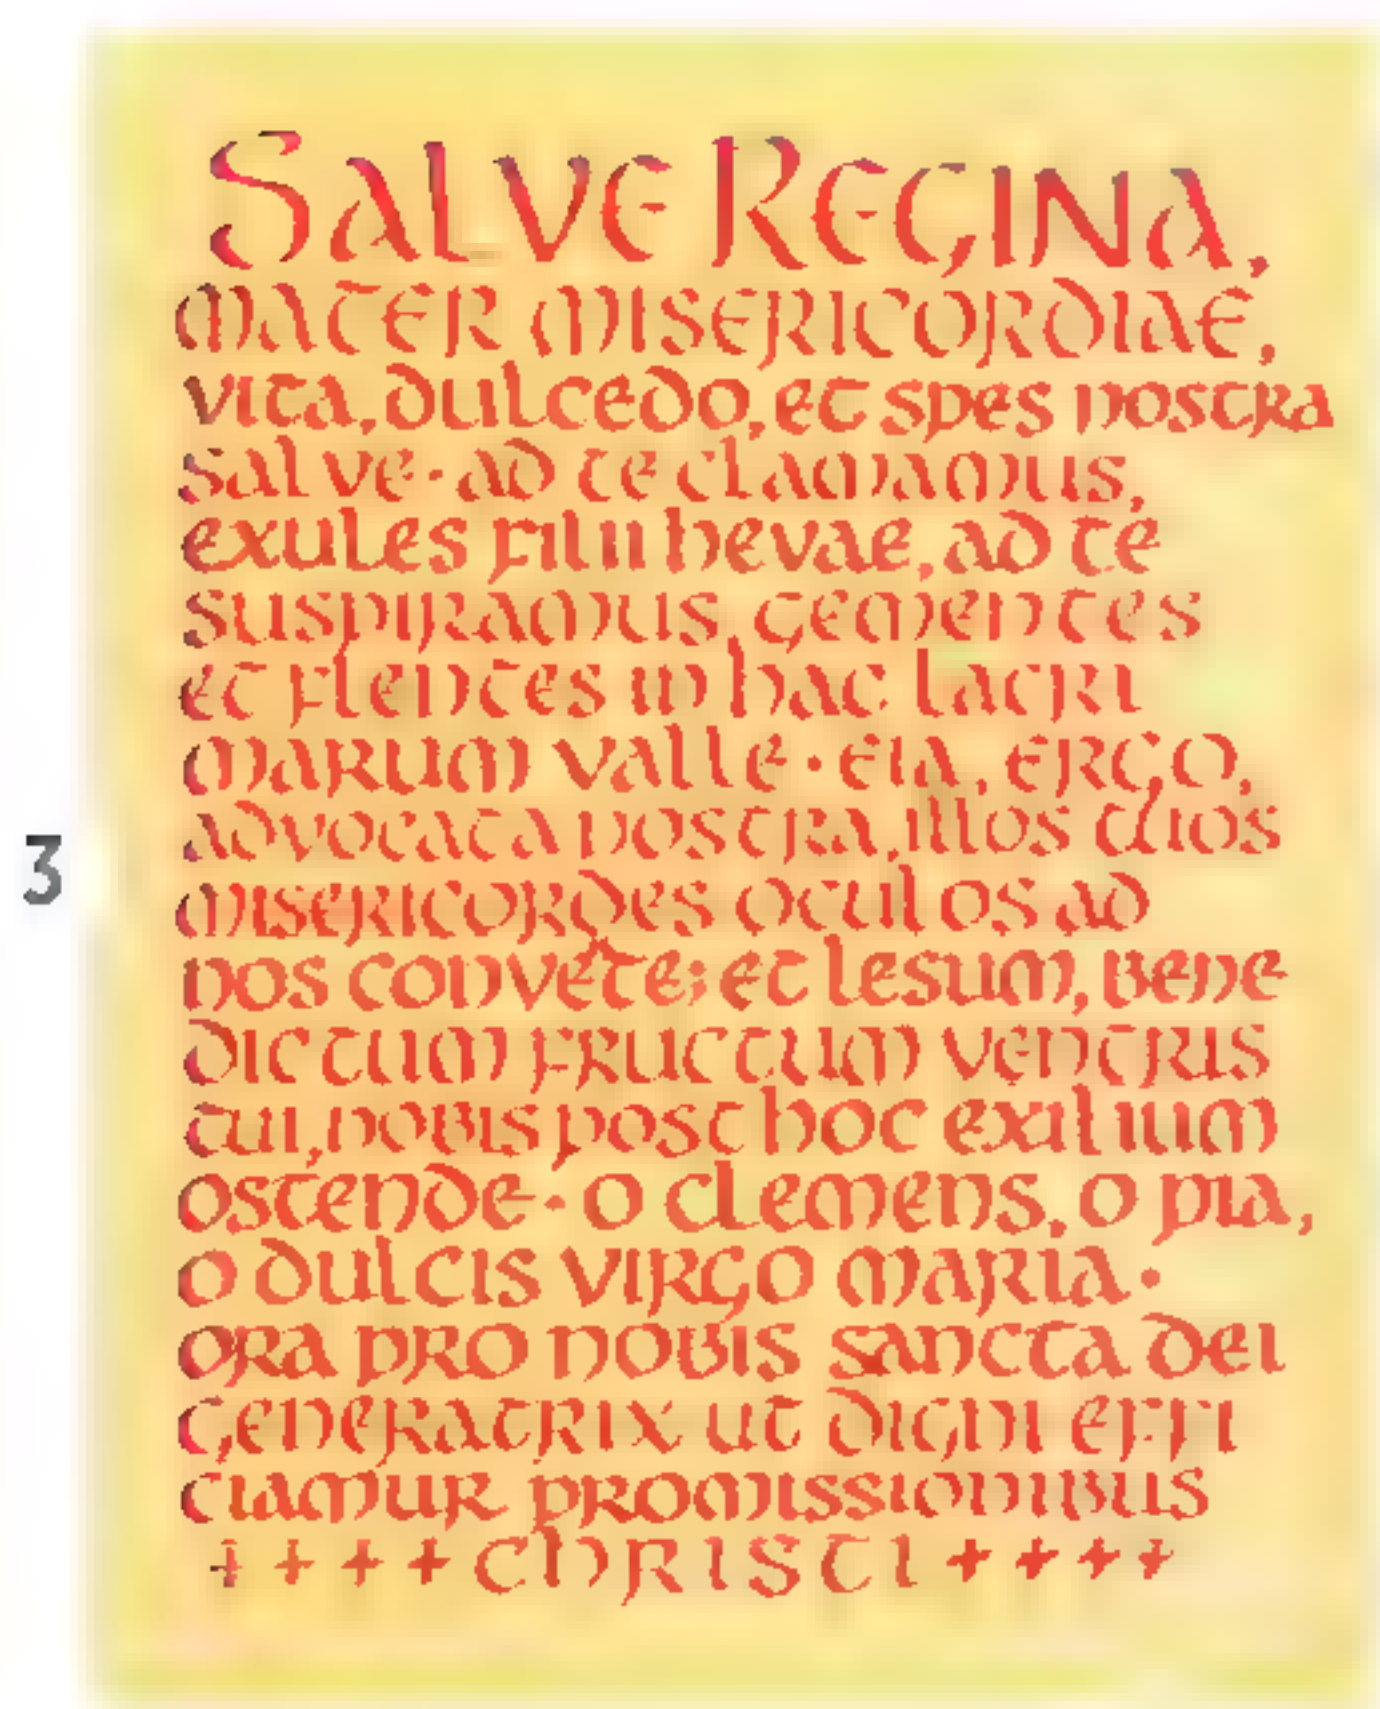 Salve Regina,
mater misericordiae,
vita, dulcedo, et spes nostra
salve · ad te clamamus,
exules filii hevae, ad te
suspiramus, gementes
et flentes in hac lacri
marum valle · eia, ergo,
advocata nostra, illos tuos
misericordes oculos ad
nos convete; et Iesum, bene
dictum fructum ventris
tui, nobis post hoc exilium
ostende · o clemens, o pia,
o dulcis virgo maria ·
ora pro nobis sancta dei
generatrix ut digni effi
ciamur promissionibus
+ + + + christi + + + +
3